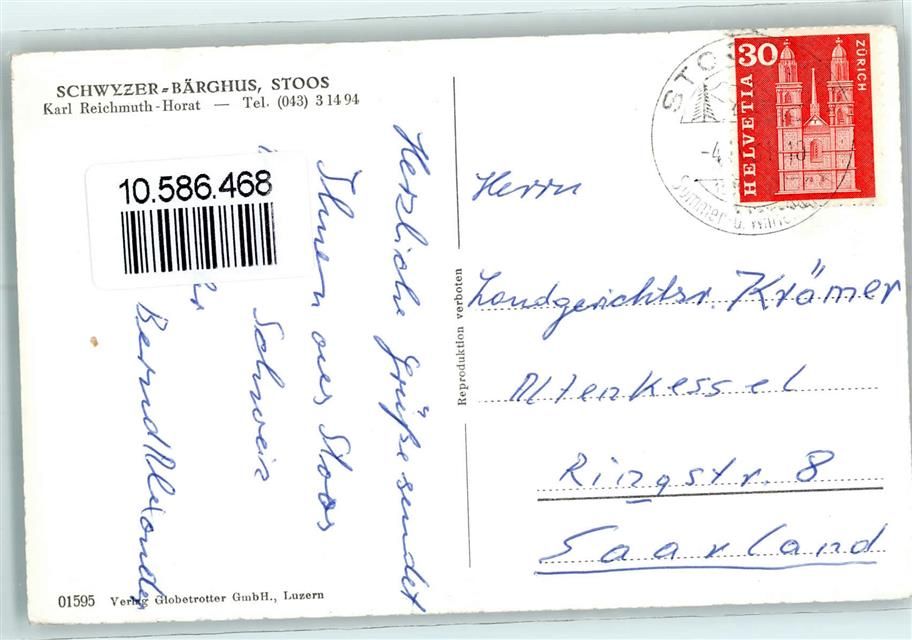 SCHWYZER-BÄRGHUS, STOOS
Karl Reichmuth-Horat — Tel. (043) 3 14 94
10.586.468
Herzliche Grüße sendet
Ihnen aus Stoos
Schweiz
Bernd
01595 Verlag Globetrotter GmbH., Luzern
Reproduktion verboten
30
HELVETIA
ZÜRICH
Herrn
Landgerichtsr. Krämer
Altenkessel
Ringstr. 8
Saarland